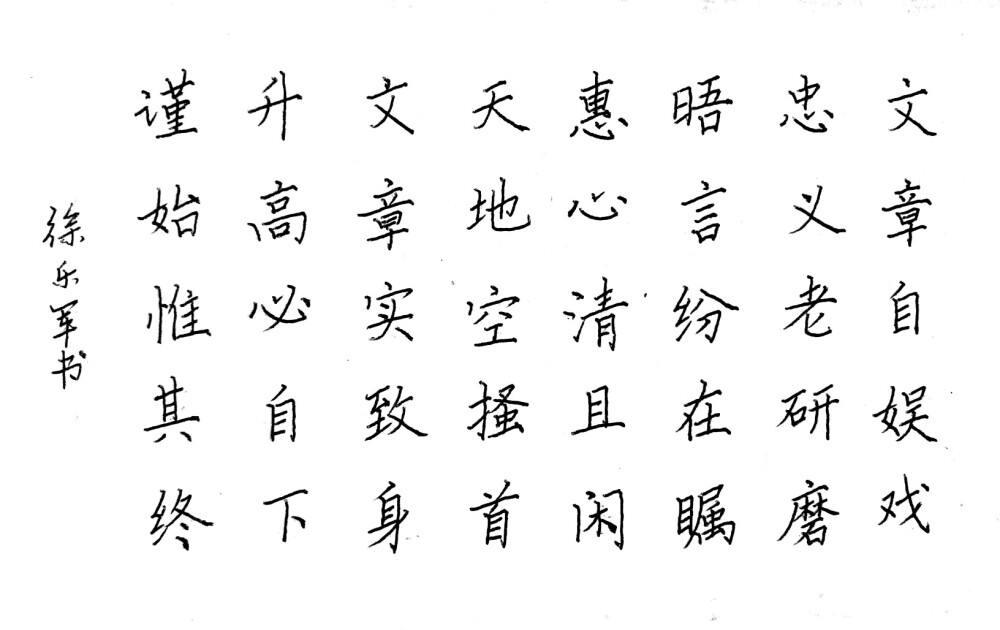 文章自娱戏
忠义老研磨
晤言纷在瞩
惠心清且闲
天地空搔首
文章实致身
升高必自下
谨始惟其终
徐乐军书